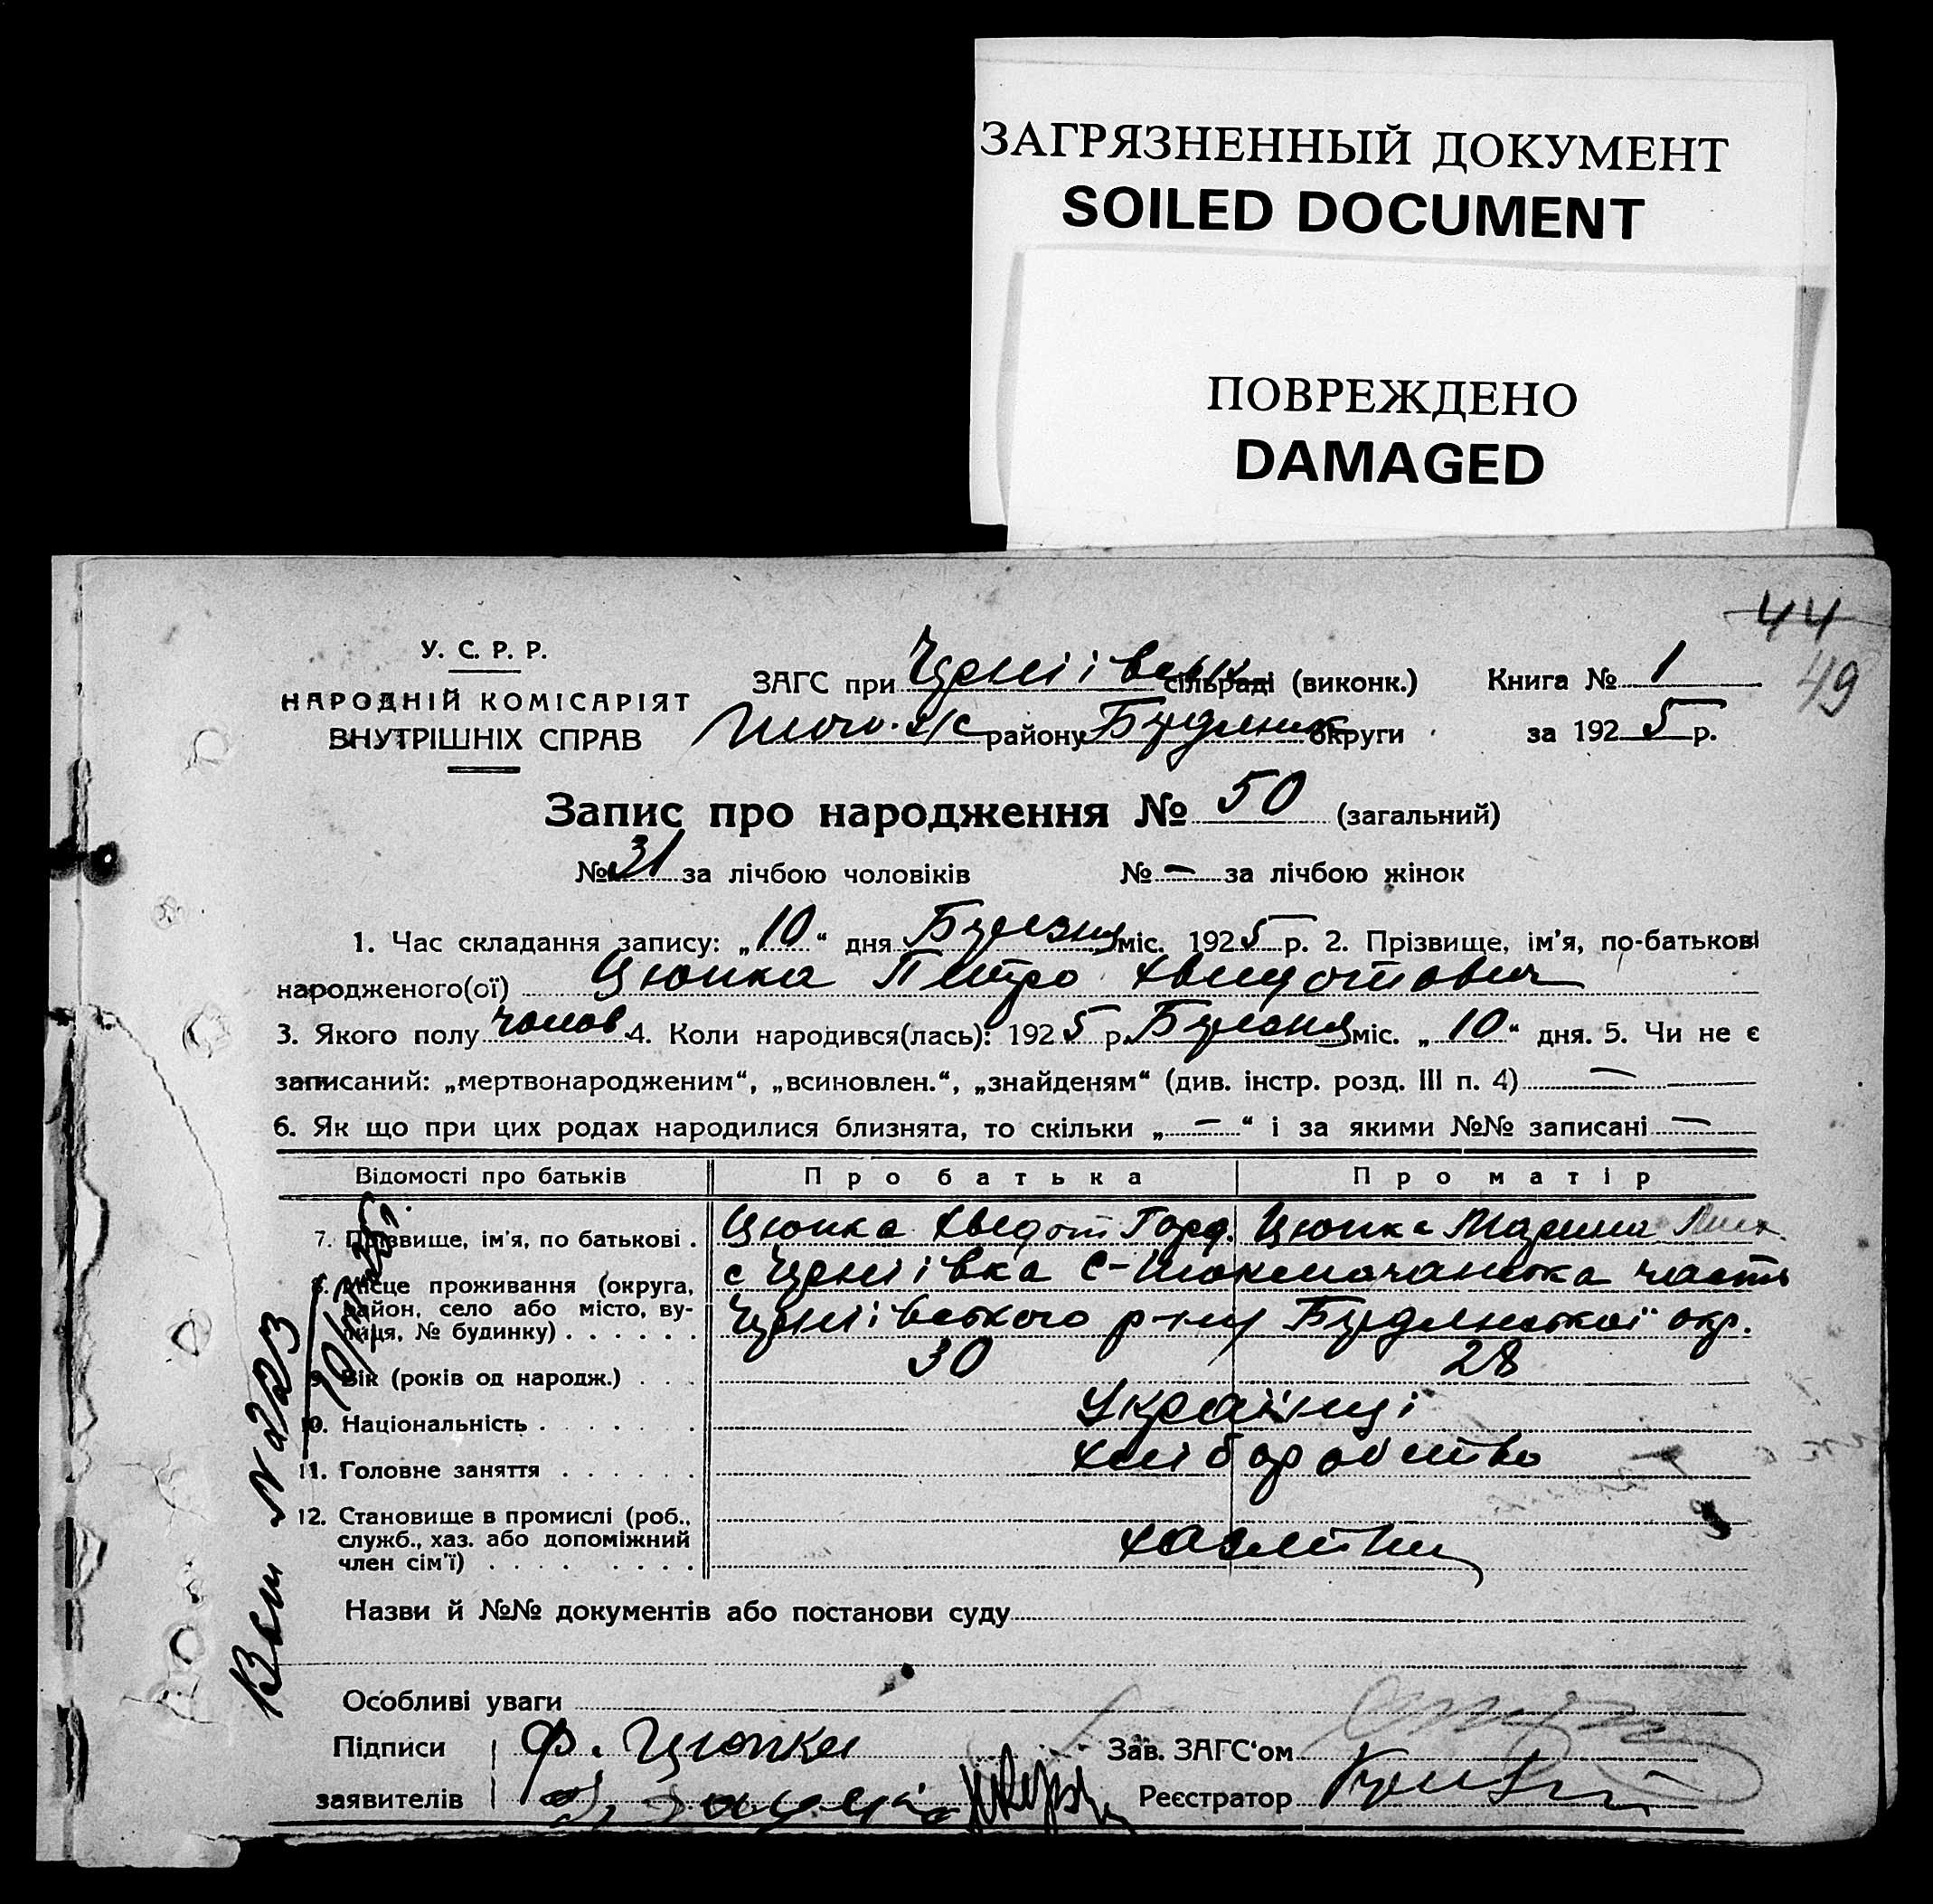 ЗАГРЯЗНЕННЫЙ ДОКУМЕНТ
SOILED DOCUMENT
ПОВРЕЖДЕНО
DAMAGED
44
49
У. С. Р. Р.
НАРОДНІЙ КОМІСАРІЯТ
ВНУТРІШНІХ СПРАВ
ЗАГС при сільраді (виконк.) Книга № 1
району округи за 1925 р.
Запис про народження № 50 (загальний)
№ 31 за лічбою чоловіків № — за лічбою жінок
1. Час складання запису: „10“ дня Березня міс. 1925 р. 2. Прізвище, ім'я, по-батькові
народженого(ої) Цюпка Петро Хведотович
3. Якого полу чолов. 4. Коли народився(лась): 1925 р. Березня міс. „10“ дня. 5. Чи не є
записаний: „мертвонародженим“, „всиновлен.“, „знайденям“ (див. інстр. розд. III п. 4) —
6. Як що при цих родах народилися близнята, то скільки „—“ і за якими №№ записані —
Відомості про батьків Про батька Про матір
7. Прізвище, ім'я, по батькові . Цюпка Хведот Горд. Цюпка Марина
8. Місце проживання (округа, с Черніївка С-Токмачанська часть
район, село або місто, ву-
лиця, № будинку) . . . . . . Чернігівського р-ну Бердянської окр.
9. Вік (років од народж.) . . . 30 28
10. Національність . . . . . . Українці
11. Головне заняття . . . . . . хліборобство
12. Становище в промислі (роб.,
служб., хаз. або допоміжний
член сім'ї) . . . . . . . . . хазяїни
Назви й №№ документів або постанови суду
Особливі уваги
Підписи Ф. Цюпка Зав. ЗАГС'ом
заявителів Реєстратор